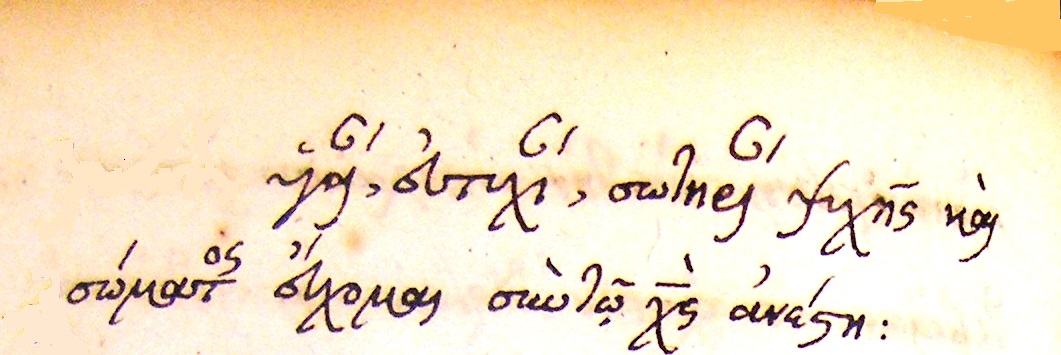 ὑγεί, εὐτυχί, σωτηρί ψυχῆς καὶ
σώματος εὔχομαι σὺν τῷ χς ἀνέστη: